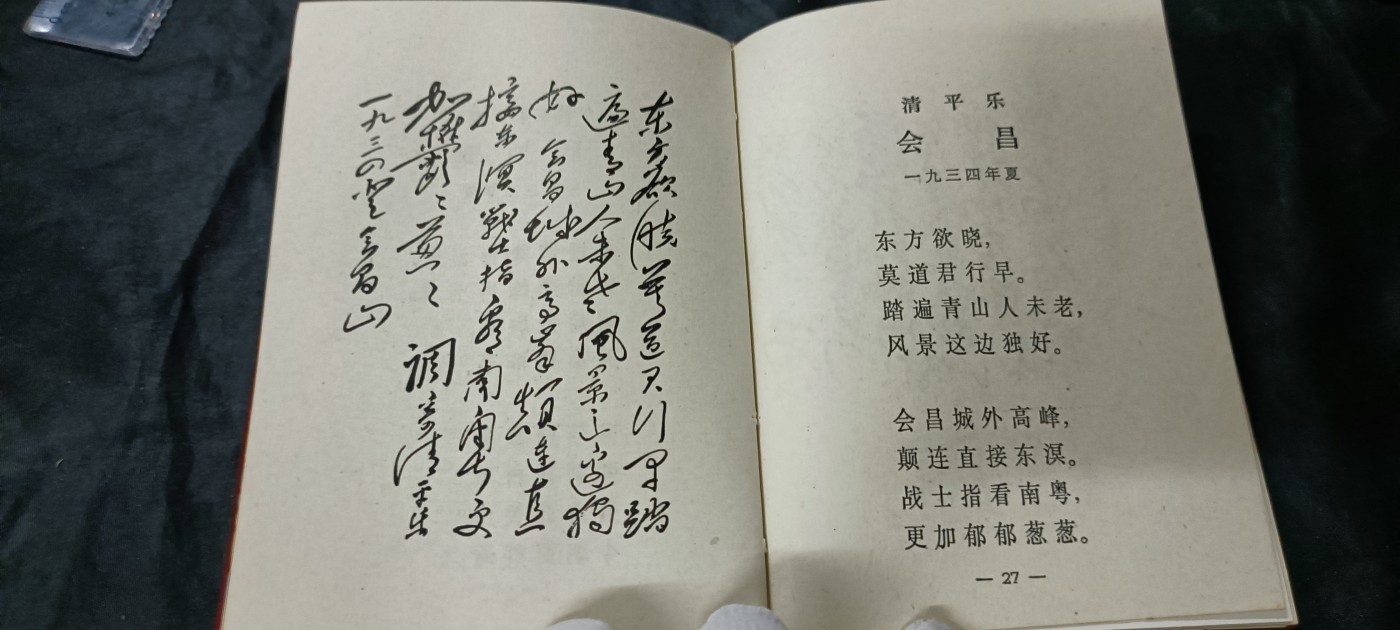 东方欲晓莫道君行早踏
遍青山人未老風景这边獨
好 会昌城外高峯颠连直
接东溟戰士指看南粤更
加欝〻葱〻 调寄清平乐
一九三四登会昌山
清平乐
会昌
一九三四年夏
东方欲晓，
莫道君行早。
踏遍青山人未老，
风景这边独好。
会昌城外高峰，
颠连直接东溟。
战士指看南粤，
更加郁郁葱葱。
— 27 —